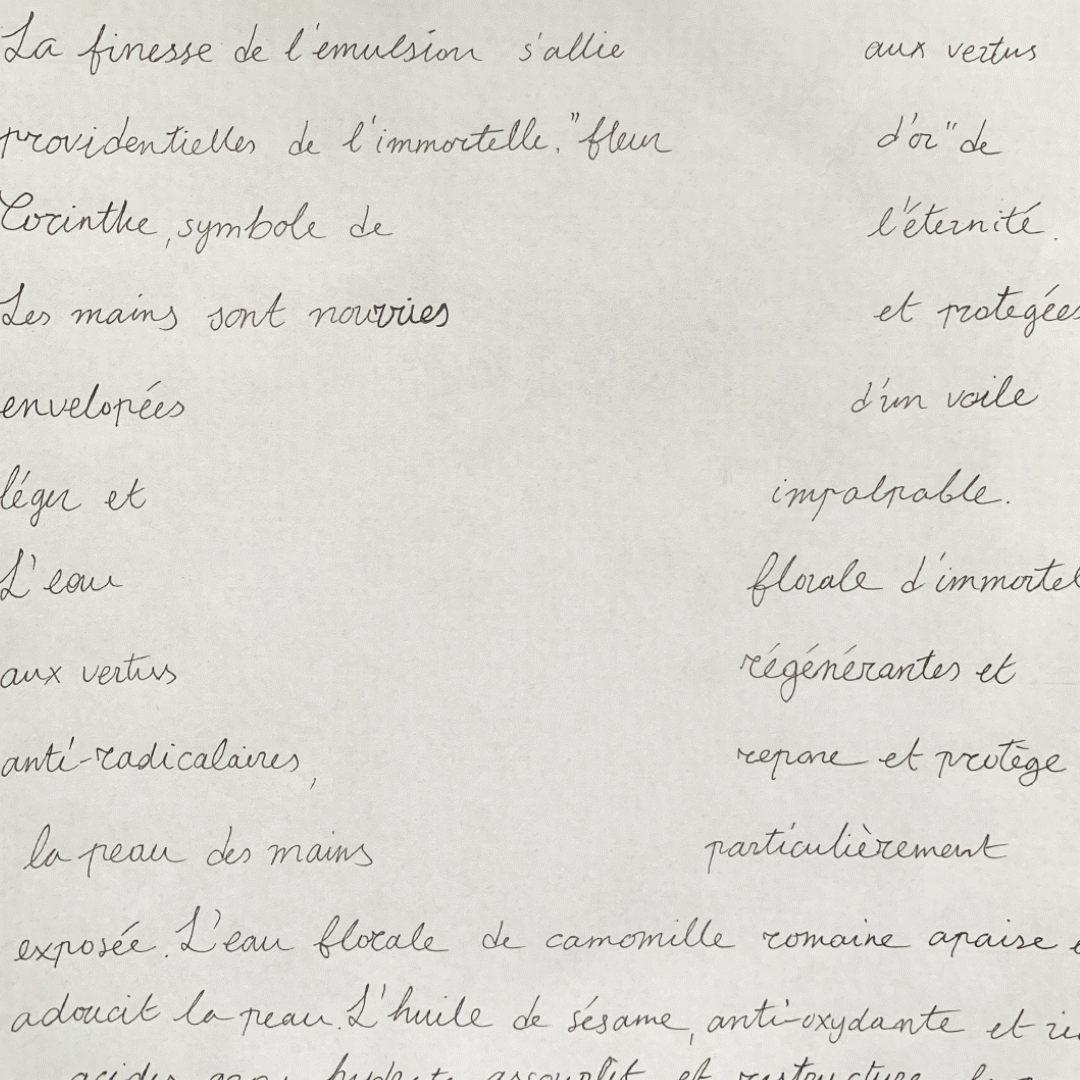 La finesse de l'émulsion s'allie aux vertus
providentielles de l'immortelle, "fleur d'or" de
Corinthe, symbole de l'éternité.
Les mains sont nourries et protegées
envelopées d'un voile
léger et impalpable.
L'eau florale d'immortel
aux vertus régénérantes et
anti-radicalaires, repare et protège
la peau des mains particulièrement
exposée. L'eau florale de camomille romaine apaise
adoucit la peau. L'huile de sésame, anti-oxydante et
acides hydrate assouplit et restructure